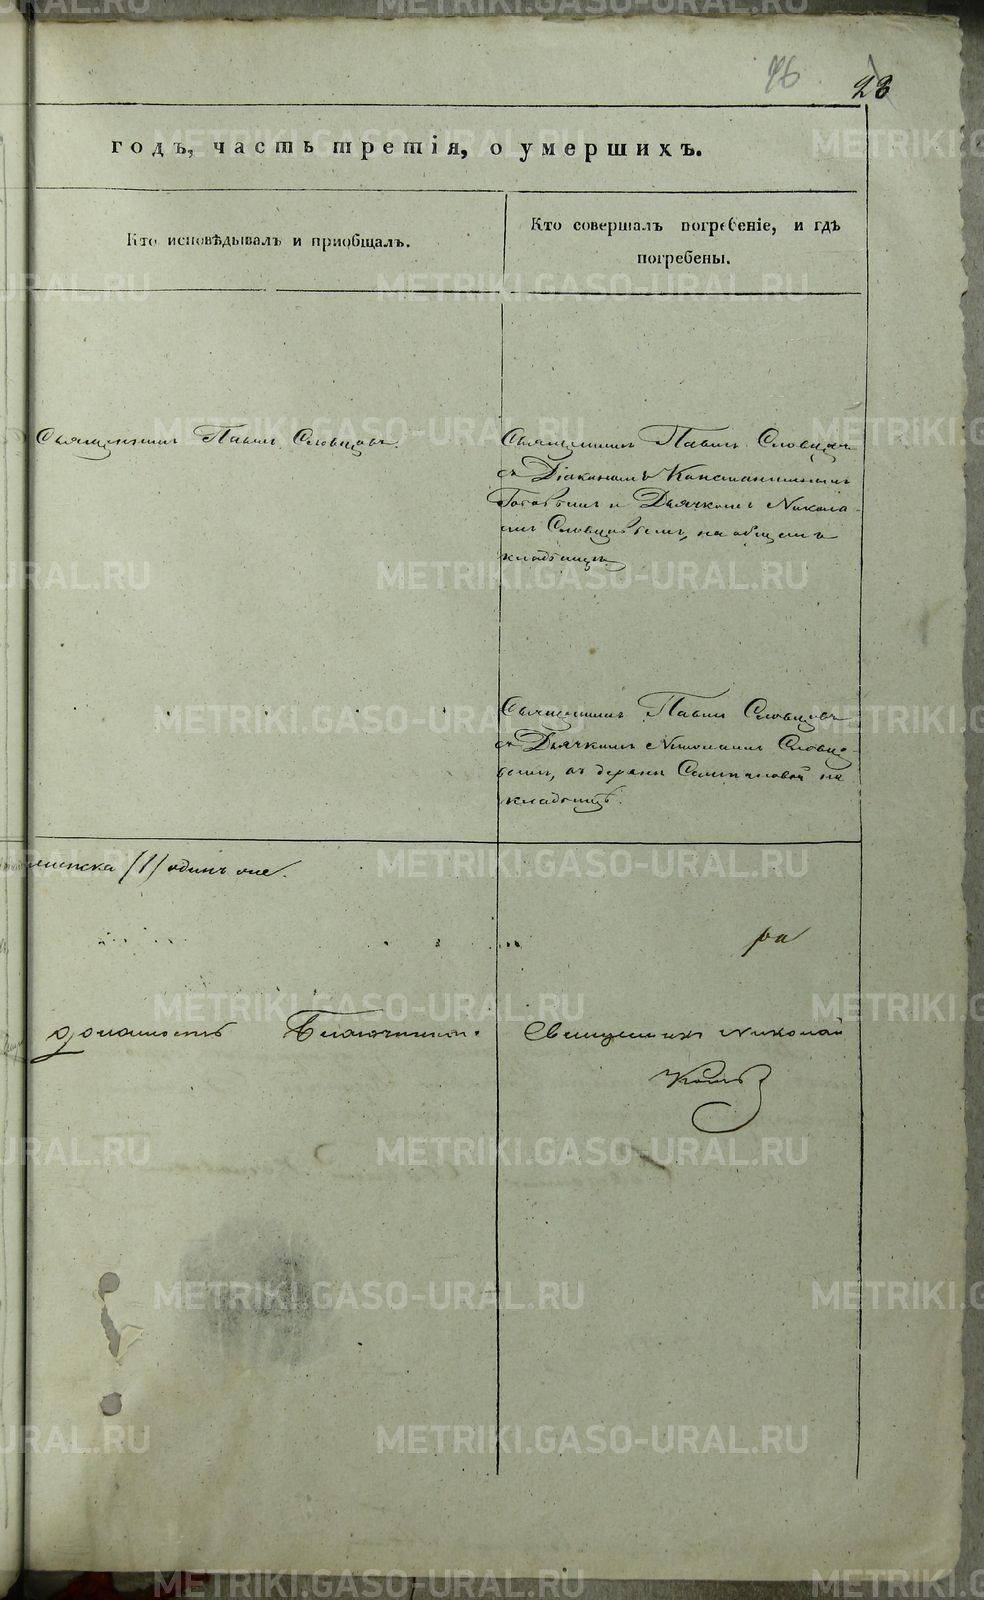 96 23
годъ, часть третія, о умершихъ.
Кто исповѣдывалъ и пріобщалъ.
Кто совершалъ погребеніе, и гдѣ
погребены.
Священникъ Павелъ Словцовъ.
Священникъ Павелъ Словцовъ
съ Діакономъ Константиномъ
и Дьячкомъ Никола-
емъ Словцовымъ, на общемъ
кладбищѣ.
Священникъ Павелъ Словцовъ
съ Дьячкомъ Николаемъ Словцо-
вымъ, въ деревнѣ на
кладбищѣ.
(1) одинъ
должность Благочиннаго
Священникъ Николай
METRIKI.GASO-URAL.RU